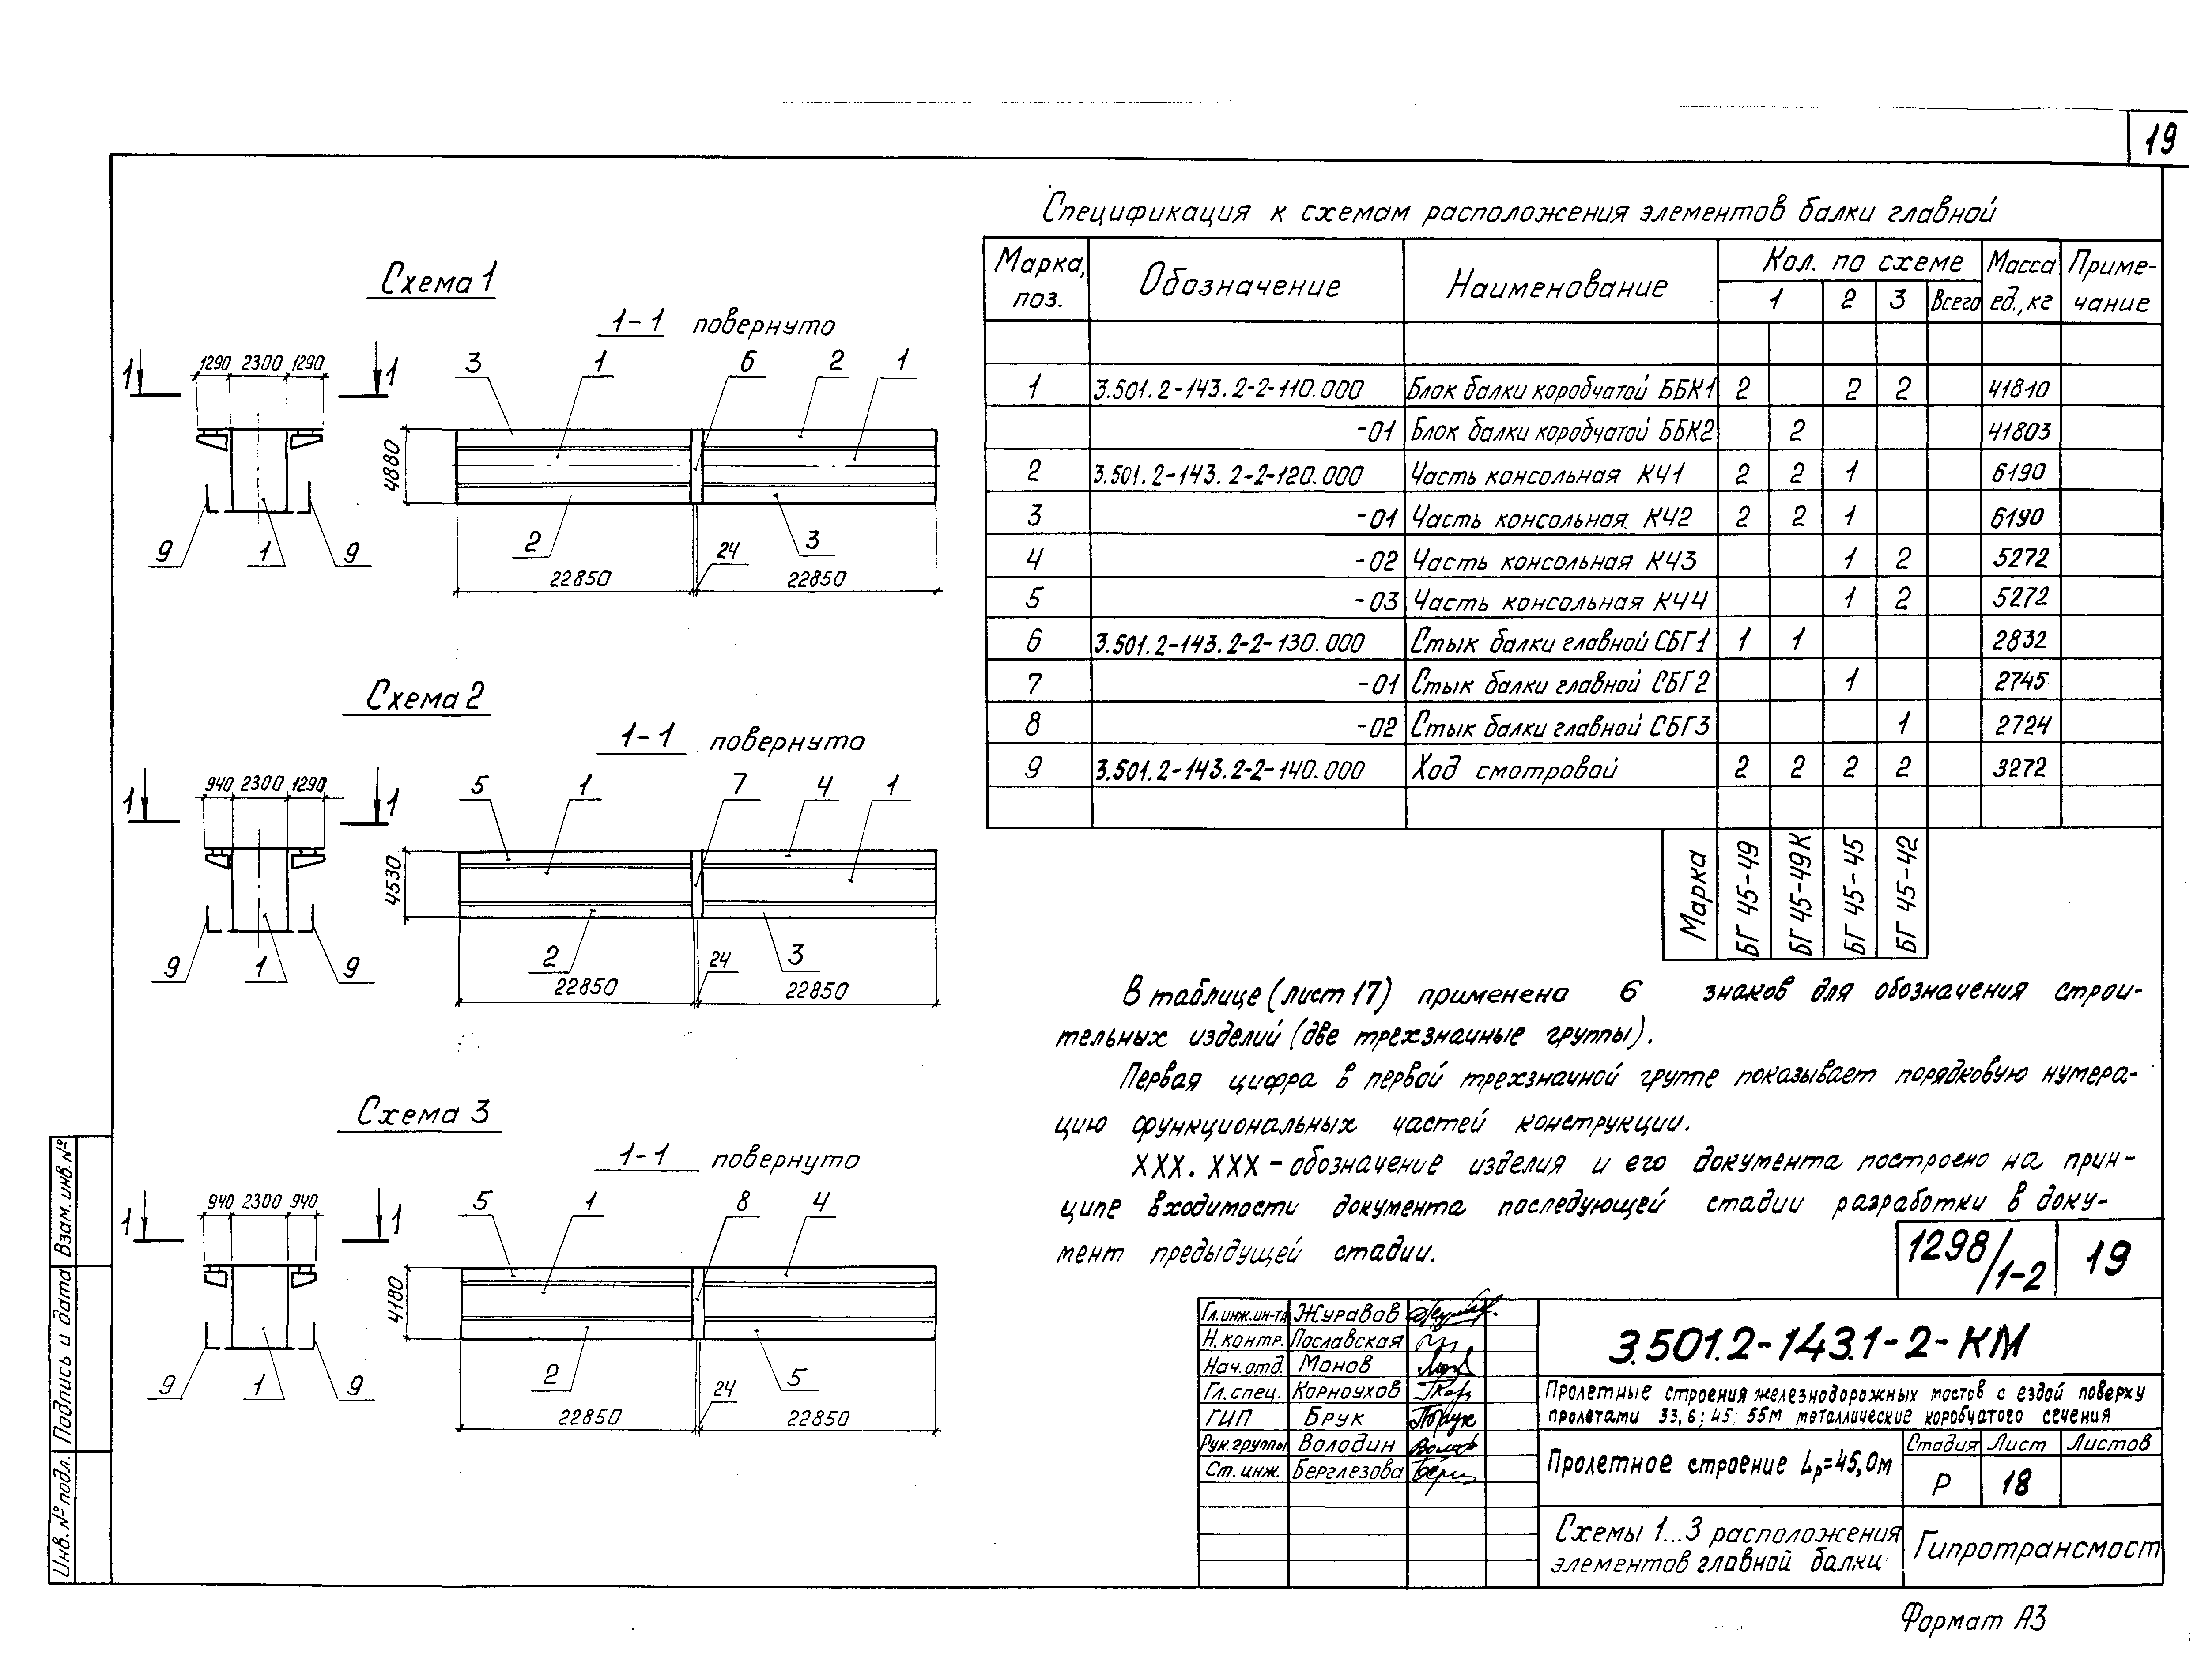 19
Схема 1
1-1 повернуто
1 1
1290 2300 1290
3 1 6 2 1
4880
9 1 9
2 24 3
22850 22850
Схема 2
1-1 повернуто
1 1
940 2300 1290
5 1 7 4 1
4530
9 1 9
2 24 3
22850 22850
Схема 3
1-1 повернуто
1 1
940 2300 940
5 1 8 4
4180
9 1 9
2 24 5
22850 22850
Спецификация к схемам расположения элементов балки главной
Марка, поз. Обозначение Наименование Кол. по схеме Масса ед., кг Приме-чание
1 2 3 Всего
1 3.501.2-143.2-2-110.000 Блок балки коробчатой ББК1 2 2 2 41810
-01 Блок балки коробчатой ББК2 2 41803
2 3.501.2-143.2-2-120.000 Часть консольная КЧ1 2 2 1 6190
3 -01 Часть консольная КЧ2 2 2 1 6190
4 -02 Часть консольная КЧ3 1 2 5272
5 -03 Часть консольная КЧ4 1 2 5272
6 3.501.2-143.2-2-130.000 Стык балки главной СБГ1 1 1 2832
7 -01 Стык балки главной СБГ2 1 2745
8 -02 Стык балки главной СБГ3 1 2724
9 3.501.2-143.2-2-140.000 Ход смотровой 2 2 2 2 3272
Марка БГ 45-49 БГ 45-49К БГ 45-45 БГ 45-42
В таблице (лист 17) применено 6 знаков для обозначения строи-
тельных изделий (две трехзначные группы).
Первая цифра в первой трехзначной группе показывает порядковую нумера-
цию функциональных частей конструкции.
XXX.XXX - обозначение изделия и его документа построено на прин-
ципе входимости документа последующей стадии разработки в доку-
мент предыдущей стадии.
1298/1-2 19
Гл.инж.ин-та Журавов
Н.контр. Пославская
Нач.отд. Монов
Гл.спец. Корноухов
ГИП Брук
Рук.группы Володин
Ст.инж. Берглезова
3.501.2-143.1-2-КМ
Пролетные строения железнодорожных мостов с ездой поверху
пролетами 33,6; 45; 55м металлические коробчатого сечения
Пролетное строение Lр=45,0м
Стадия Лист Листов
Р 18
Схемы 1...3 расположения
элементов главной балки
Гипротрансмост
Формат А3
Инв. № подл. Подпись и дата Взам. инв. №